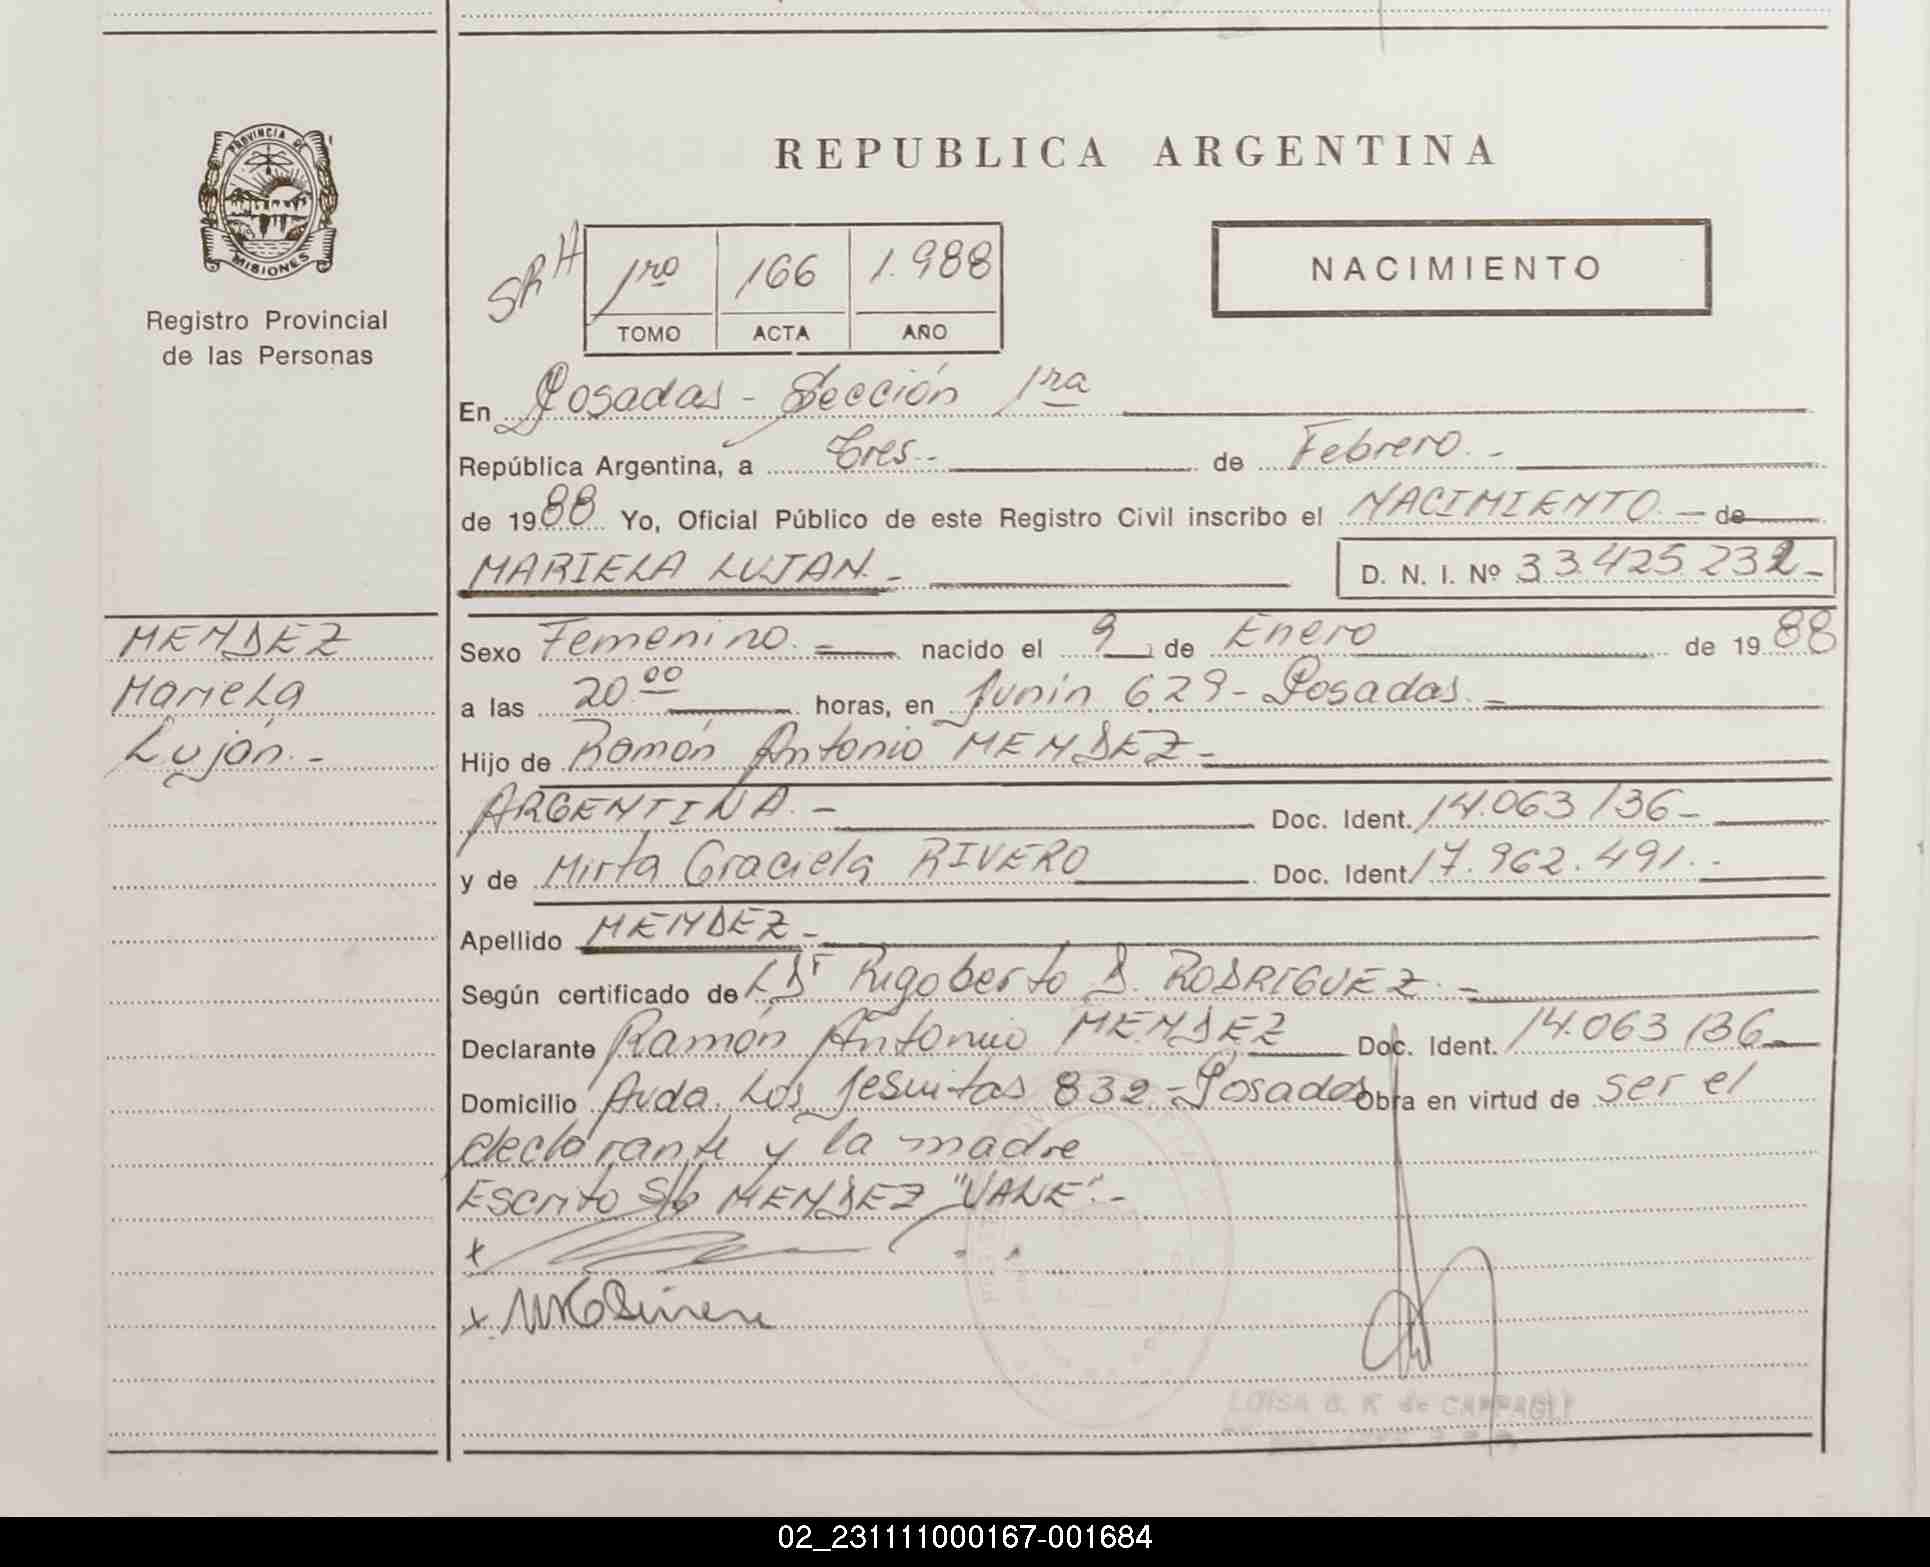 PROVINCIA DE
MISIONES
Registro Provincial
de las Personas
REPUBLICA ARGENTINA
SRH
1ro 166 1.988
TOMO ACTA AÑO
NACIMIENTO
En Posadas - Sección 1ra
República Argentina, a Tres.- de Febrero.-
de 1988 Yo, Oficial Público de este Registro Civil inscribo el NACIMIENTO.- de
MARIELA LUJAN.- D. N. I. Nº 33.425.232-
MENDEZ
Mariela
Luján.-
Sexo Femenino.- nacido el 9 de Enero de 1988
a las 20.00 horas, en Junín 629 - Posadas.-
Hijo de Ramón Antonio MENDEZ.-
ARGENTINA.- Doc. Ident. 14.063.136-
y de Mirta Graciela RIVERO Doc. Ident. 17.962.491.-
Apellido MENDEZ.-
Según certificado de LDr Rigoberto D. RODRIGUEZ.-
Declarante Ramón Antonio MENDEZ Doc. Ident. 14.063.136-
Domicilio Avda. Los Jesuitas 832.- Posadas Obra en virtud de ser el
declarante y la madre
Escrito S/b MENDEZ "VALE".-
x
x
LUISA G. K de CAPPAGLI
02_231111000167-001684